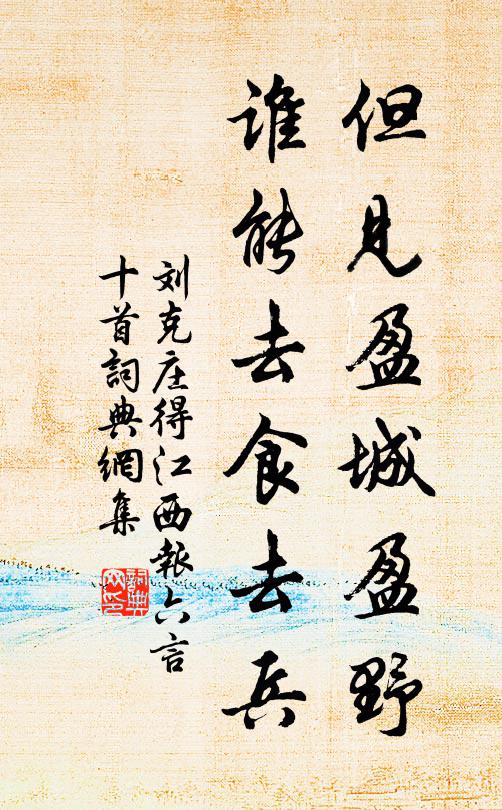 但见盈城盈野
谁能去食去兵
刘克庄得江西报六言
十首詞典網集